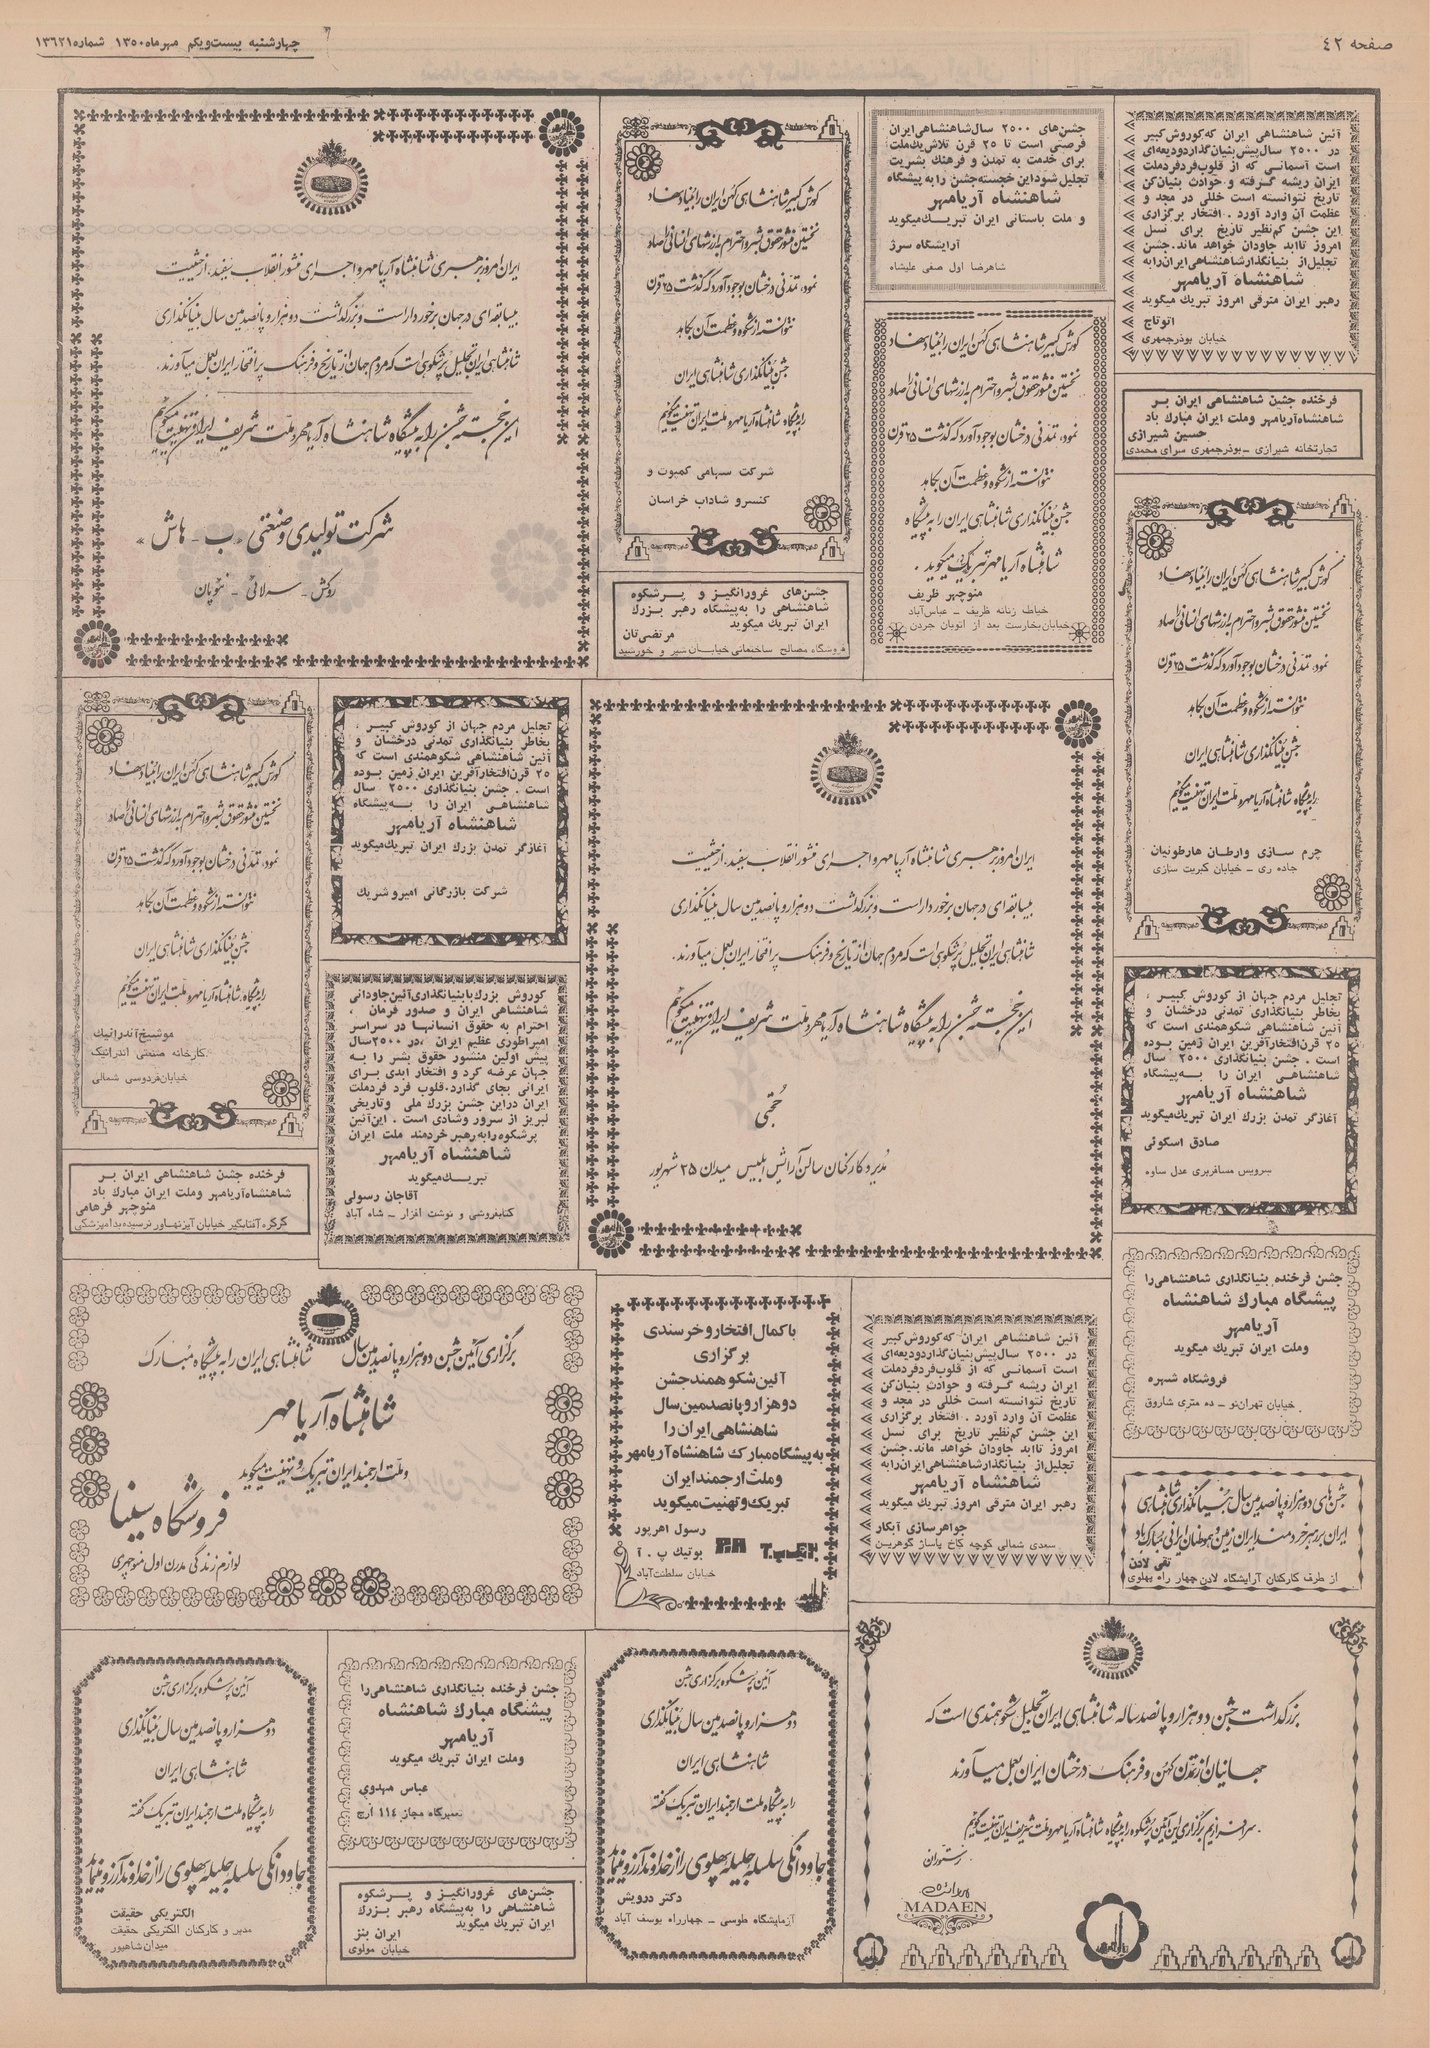 صفحه ٤٢
چهارشنبه بیست‌ویکم مهرماه ۱۳۵۰ شماره ۱۳۶۲۱
آئین شاهنشاهی ایران که‌کوروش‌کبیر
در ۲۵۰۰ سال‌پیش‌بنیان‌گذاردودیعه‌ای
است آسمانی که از قلوب‌فردفردملت
ایران ریشه گرفته و حوادث بنیان‌کن
تاریخ نتوانسته است خللی در مجد و
عظمت آن وارد آورد . افتخار برگزاری
این جشن کم‌نظیر تاریخ برای نسل
امروز تاابد جاودان خواهد ماند. جشن
تجلیل‌از بنیانگذارشاهنشاهی‌ایران‌رابه
شاهنشاه آریامهر
رهبر ایران مترقی امروز تبریك میگوید
اتوتاج
خیابان بوذرجمهری
جشن‌های ۲۵۰۰ سال‌شاهنشاهی‌ایران
فرصتی است تا ۲۵ قرن تلاش‌یك‌ملت
برای خدمت به تمدن و فرهنك بشریت
تجلیل شوداین خجسته‌جشن رابه‌پیشگاه
شاهنشاه آریامهر
و ملت باستانی ایران تبریك‌میگوید
آرایشگاه سرژ
شاهرضا اول صفی علیشاه
کورش کبیر شاهنشاهی کهن ایران را بنیاد نهاد
نخستین منشور حقوق بشر و احترام به ارزشهای انسانی را صادر
نمود، تمدنی درخشان بوجود آورد که گذشت ۲۵ قرن
نتوانسته از شکوه و عظمت آن بکاهد
جشن بنیانگذاری شاهنشاهی ایران
را به پیشگاه شاهنشاه آریامهر و ملت ایران تهنیت میگوئیم
شرکت سهامی کمپوت و
کنسرو شاداب خراسان
ایران امروز برهبری شاهنشاه آریامهر و اجرای منشور انقلاب سفید، از حیثیت
بیسابقه‌ای در جهان برخوردار است و بزرگداشت دوهزار و پانصدمین سال بنیانگذاری
شاهنشاهی ایران تجلیل پرشکوهی است که مردم جهان از تاریخ و فرهنگ پرافتخار ایران بعمل میآورند.
این خجسته جشن را به پیشگاه شاهنشاه آریامهر و ملت شریف ایران تهنیت میگوئیم
شرکت تولیدی و صنعتی «ب ـ هاش»
روکش ـ سرلائی ـ نئوپان
فرخنده جشن شاهنشاهی ایران بر
شاهنشاه‌آریامهر وملت ایران مبارك باد
حسین شیرازی
تجارتخانه شیرازی ـ بوذرجمهری سرای محمدی
کورش کبیر شاهنشاهی کهن ایران را بنیاد نهاد
نخستین منشور حقوق بشر و احترام به ارزشهای انسانی را صادر
نمود، تمدنی درخشان بوجود آورد که گذشت ۲۵ قرن
نتوانسته از شکوه و عظمت آن بکاهد
جشن بنیانگذاری شاهنشاهی ایران را به پیشگاه
شاهنشاه آریامهر تبریک میگوید .
منوچهر ظریف
خیاط زنانه ظریف ـ عباس‌آباد
خیابان‌بخارست بعد از اتوبان جردن
جشن‌های غرورانگیز و پرشکوه
شاهنشاهی را به‌پیشگاه رهبر بزرك
ایران تبریك میگوید
مرتضی‌تان
فروشگاه مصالح ساختمانی خیابان شیر و خورشید
کورش کبیر شاهنشاهی کهن ایران را بنیاد نهاد
نخستین منشور حقوق بشر و احترام به ارزشهای انسانی را صادر
نمود، تمدنی درخشان بوجود آورد که گذشت ۲۵ قرن
نتوانسته از شکوه و عظمت آن بکاهد
جشن بنیانگذاری شاهنشاهی ایران
را به پیشگاه شاهنشاه آریامهر و ملت ایران تهنیت میگوئیم
چرم سازی وارطان هارطونیان
جاده ری ـ خیابان کبریت سازی
ایران امروز برهبری شاهنشاه آریامهر و اجرای منشور انقلاب سفید، از حیثیت
بیسابقه‌ای در جهان برخوردار است و بزرگداشت دوهزار و پانصدمین سال بنیانگذاری
شاهنشاهی ایران تجلیل پرشکوهی است که مردم جهان از تاریخ و فرهنگ پرافتخار ایران بعمل میآورند.
این خجسته جشن را به پیشگاه شاهنشاه آریامهر و ملت شریف ایران تهنیت میگوئیم
حجتی
مدیر و کارکنان سالن آرایش ابلیس میدان ۲۵ شهریور
تجلیل مردم جهان از کوروش کبیر ،
بخاطر بنیانگذاری تمدنی درخشان و
آئین شاهنشاهی شکوهمندی است که
۲۵ قرن‌افتخارآفرین ایران زمین بوده
است . جشن بنیانگذاری ۲۵۰۰ سال
شاهنشاهی ایران را به‌پیشگاه
شاهنشاه آریامهر
آغازگر تمدن بزرك ایران تبریك‌میگوید
شرکت بازرگانی امیروشریك
کورش کبیر شاهنشاهی کهن ایران را بنیاد نهاد
نخستین منشور حقوق بشر و احترام به ارزشهای انسانی را صادر
نمود، تمدنی درخشان بوجود آورد که گذشت ۲۵ قرن
نتوانسته از شکوه و عظمت آن بکاهد
جشن بنیانگذاری شاهنشاهی ایران
را به پیشگاه شاهنشاه آریامهر و ملت ایران تهنیت میگوئیم
موشیخ‌آندرانیك
کارخانه صنعتی آندرانیك
خیابان‌فردوسی شمالی
کوروش بزرك بابنیانگذاری‌آئین‌جاودانی
شاهنشاهی ایران و صدور فرمان ،
احترام به حقوق انسانها در سراسر
امپراطوری عظیم ایران ،در ۲۵۰۰سال
پیش اولین منشور حقوق بشر را به
جهان عرضه کرد و افتخار ابدی برای
ایرانی بجای گذارد. قلوب فرد فردملت
ایران دراین جشن بزرك ملی وتاریخی
لبریز از سرور وشادی است . این‌آئین
پرشکوه‌رابه‌رهبر خردمند ملت ایران
شاهنشاه آریامهر
تبریك‌میگوید
آقاجان رسولی
کتابفروشی و نوشت افزار ـ شاه آباد
تجلیل مردم جهان از کوروش کبیر ،
بخاطر بنیانگذاری تمدنی درخشان و
آئین شاهنشاهی شکوهمندی است که
۲۵ قرن‌افتخارآفرین ایران زمین بوده
است . جشن بنیانگذاری ۲۵۰۰ سال
شاهنشاهی ایران را به‌پیشگاه
شاهنشاه آریامهر
آغازگر تمدن بزرك ایران تبریك‌میگوید
صادق اسکوئی
سرویس مسافربری عدل ساوه
فرخنده جشن شاهنشاهی ایران بر
شاهنشاه‌آریامهر وملت ایران مبارك باد
منوچهر فرهامی
کرکره آفتابگیر خیابان آیزنهاور نرسیده‌بدامپزشکی
جشن فرخنده بنیانگذاری شاهنشاهی‌را
پیشگاه مبارك شاهنشاه
آریامهر
وملت ایران تبریك میگوید
فروشگاه شهره
خیابان تهران‌نو ـ ده متری شاروق
آئین شاهنشاهی ایران که‌کوروش‌کبیر
در ۲۵۰۰ سال‌پیش‌بنیان‌گذاردودیعه‌ای
است آسمانی که از قلوب‌فردفردملت
ایران ریشه گرفته و حوادث بنیان‌کن
تاریخ نتوانسته است خللی در مجد و
عظمت آن وارد آورد . افتخار برگزاری
این جشن کم‌نظیر تاریخ برای نسل
امروز تاابد جاودان خواهد ماند. جشن
تجلیل‌از بنیانگذارشاهنشاهی‌ایران‌رابه
شاهنشاه آریامهر
رهبر ایران مترقی امروز تبریك میگوید
جواهرسازی آبکار
سعدی شمالی کوچه کاخ پاساژ گوهرین
باکمال افتخار وخرسندی
برگزاری
آئین شکوهمندجشن
دوهزاروپانصدمین سال
شاهنشاهی ایران را
به‌پیشگاه مبارك شاهنشاه آریامهر
وملت ارجمندایران
تبریك‌وتهنیت میگوید
رسول اهرپور
بوتیك پ . آ
خیابان سلطنت‌آباد
برگزاری آئین جشن دوهزار و پانصدمین سال شاهنشاهی ایران را به پیشگاه مبارک
شاهنشاه آریامهر
و ملت ارجمند ایران تبریک و تهنیت میگوید
فروشگاه سینا
لوازم زندگی مدرن اول منوچهری
جشن‌های دوهزار و پانصدمین سال بنیانگذاری شاهنشاهی
ایران بر رهبر خردمند ایران زمین و هموطنان ایرانی مبارکباد
تقی لادن
از طرف کارکنان آرایشگاه لادن چهار راه پهلوی
بزرگداشت جشن دوهزار و پانصد ساله شاهنشاهی ایران تجلیل شکوهمندی است که
جهانیان از تمدن کهن و فرهنگ درخشان ایران بعمل میآورند
سرافرازیم برگزاری این آئین پرشکوه را به پیشگاه شاهنشاه آریامهر و ملت شریف ایران تهنیت گوئیم
رستوران
MADAEN
آئین پرشکوه برگزاری جشن
دوهزار و پانصدمین سال بنیانگذاری
شاهنشاهی ایران
را به پیشگاه ملت ارجمند ایران تبریک گفته
جاودانگی سلسله جلیله پهلوی را از خداوند آرزو مینماید
دکتر درویش
آزمایشگاه طوسی ـ چهارراه یوسف آباد
جشن فرخنده بنیانگذاری شاهنشاهی‌را
پیشگاه مبارك شاهنشاه
آریامهر
وملت ایران تبریك میگوید
عباس مهدوی
تعمیرگاه مجاز ۱۱٤ ارج
جشن‌های غرورانگیز و پرشکوه
شاهنشاهی را به‌پیشگاه رهبر بزرك
ایران تبریك میگوید
ایران بنز
خیابان مولوی
آئین پرشکوه برگزاری جشن
دوهزار و پانصدمین سال بنیانگذاری
شاهنشاهی ایران
را به پیشگاه ملت ارجمند ایران تبریک گفته
جاودانگی سلسله جلیله پهلوی را از خداوند آرزو مینماید
الکتریکی حقیقت
مدیر و کارکنان الکتریکی حقیقت
میدان‌شاهپور